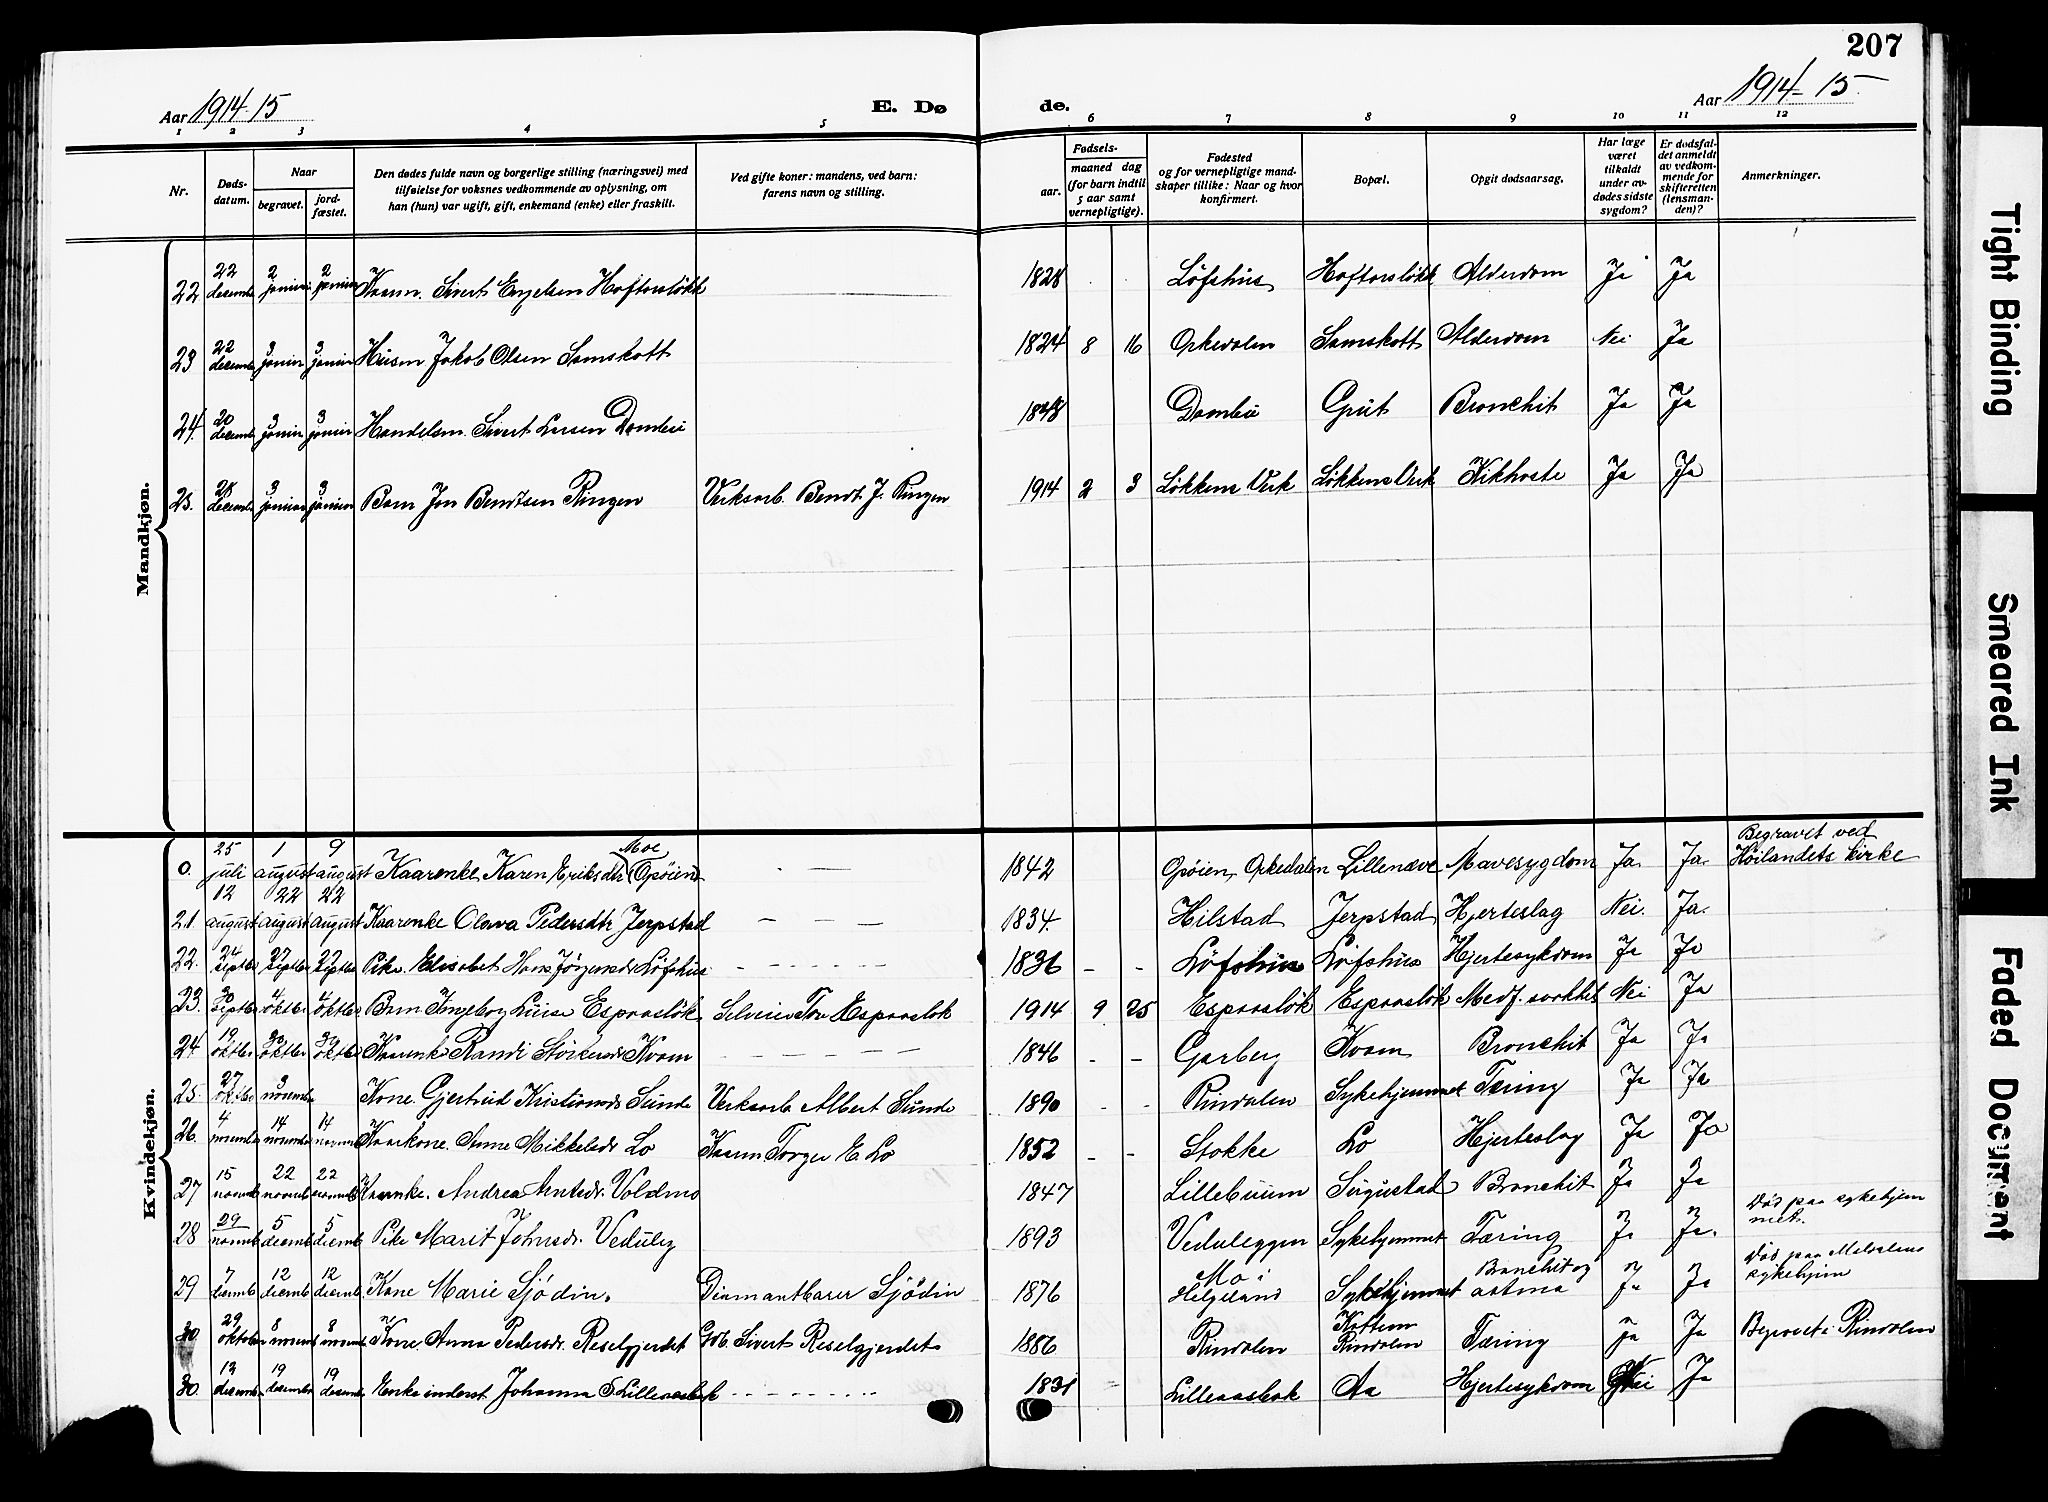 207
Aar 1914-15
E. Dø
de.
Aar 1914-15
1 2 3 4 5 6 7 8 9 10 11 12
Nr.
Døds-
datum.
Naar
begravet.
jord-
fæstet.
Den dødes fulde navn og borgerlige stilling (næringsvei) med
tilføielse for voksnes vedkommende av oplysning, om
han (hun) var ugift, gift, enkemand (enke) eller fraskilt.
Ved gifte koner: mandens, ved barn:
farens navn og stilling.
Fødsels-
aar.
maaned dag
(for barn indtil
5 aar samt
vernepligtige).
Fødested
og for vernepligtige mand-
skaper tillike: Naar og hvor
konfirmert.
Bopæl.
Opgit dødsaarsag.
Har læge
været
tilkaldt
under av-
dødes sidste
sygdom?
Er dødsfal-
det anmeldt
av vedkom-
mende for
skifteretten
(lensman-
den)?
Anmerkninger.
Mandkjøn.
22 22 desemb 2 januar 2 januar Kaarm. Sivert Engelsen Haftorsløkk 1828 Løfshus Haftorsløkk Alderdom Ja Ja
23 22 desemb 3 januar 3 januar Husm Jakob Olsen Somskott 1824 8 16 Orkedalen Somskott Alderdom Nei Ja
24. 20 desemb 3 januar 3 januar Handelsm. Sivert Larsen Dombu 1848 Dombu Grut Bronchit Ja Ja
25. desemb 3 januar 3 januar Barn Jon Bendtsen Ringen Verksarb. Bendt J. Ringen 1914 2 3 Løkkens Verk Løkkens Verk Kikhoste Ja Ja
Kvindekjøn.
0. 25 juli 1 august 9 august Kaarenke Karen Eriksdtr Moe (Opøien) - — 1842 Opøien, Orkedalen Lillenæve Mavesygdom Ja Ja Begravet ved Høilandets kirke
21 12 august 22 august 22 august Kaarenke Olava Pedersdtr Jerpstad — — — 1834. Hilstad Jerpstad Hjerteslag Nei. Ja.
22. 24 septbr 27 septbr 27 septbr Pike. Elisabet Hans Jørgensdr Løfshus - - - - - 1836 - - Løfshus Løfshus Hjertesykdom Ja Ja
23. 30 septbr 4 oktbr 4 oktbr Barn Ingeborg Luise Espaasløk Selveier Tor Espaasløk 1914 9 25 Espaasløk Espaasløk Medf. svakhet Nei Ja
24 19 oktbr oktbr oktbr Kaarenke Randi Størkersdr Kvam — — — 1846 - - Garberg Kvam Bronchit Ja Ja
25. 27 oktbr 3 novemb Kone. Gjertrud Kristiansdr Sunde Verksarb Albert Sunde 1890 - - Rindalen Sykehjemmet Tæring Ja Ja
26. 4 novemb 14 novemb 14 novemb Kaarkone. Anne Mikkelsdr Lo Kaarm Torger E Lo 1852 - - Stokke Lo Hjerteslag Ja Ja
27 15 novemb 22 novemb 22 novemb Kaarenke. Andrea Arntsdr. Voldmo 1847 Lillebuum Sugustad Bronchit Ja Ja
28 29 novemb 5 desemb 5 desemb Pike Marit Johnsdr. Veduleg 1893 Veduleggen Sykehjemmet Tæring Ja Ja. Død paa sykehjem met.
29 7 desemb 12 desemb 12 desemb Kone Marie Sjödin. Diamantborer Sjödin 1876 Mo i Helgeland Sykehjemmet Bronchit og astma Ja Ja Død paa Meldalens sykehjem
30. 29 oktober 8 novemb 8 novemb Kone. Anna Pedersdr. Reselgjerdet Gdb. Sivert Reselgjerdet 1886 Rindalen Rindalen Tæring Ja Ja Begravet i Rindalen
30. 13 desemb 19 desemb 19 desemb Enke inderst Johanna S Lilleaasbak - - - - - 1831 Lilleaasbak Aa Hjertesykdom Nei Ja
Tight Binding
Smeared Ink
Faded Document